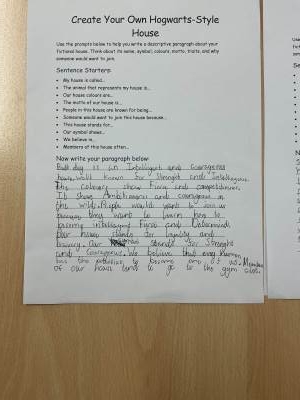 Create Your Own Hogwarts-Style
House
Use the prompts below to help you write a descriptive paragraph about your
fictional house. Think about its name, symbol, colours, motto, traits, and why
someone would want to join.
Sentence Starters:
• My house is called...
• The animal that represents my house is...
• Our house colours are...
• The motto of our house is...
• People in this house are known for being...
• Someone would want to join this house because...
• This house stands for...
• Our symbol shows...
• We believe in...
• Members of this house often...
Now write your paragraph below
is an Intelligent and Courageous
well known for Strength and Intelligence.
The colours show Fierce and
It shows and courageous in
the wild. People would want to Join us
they want to learn how to
Fierce and Determined.
Our house stands for loyalty and
bravery. Our stands for Strength
and Courageous. We believe that every
has the potential to become one of us. Members
of our house tends to go to the gym